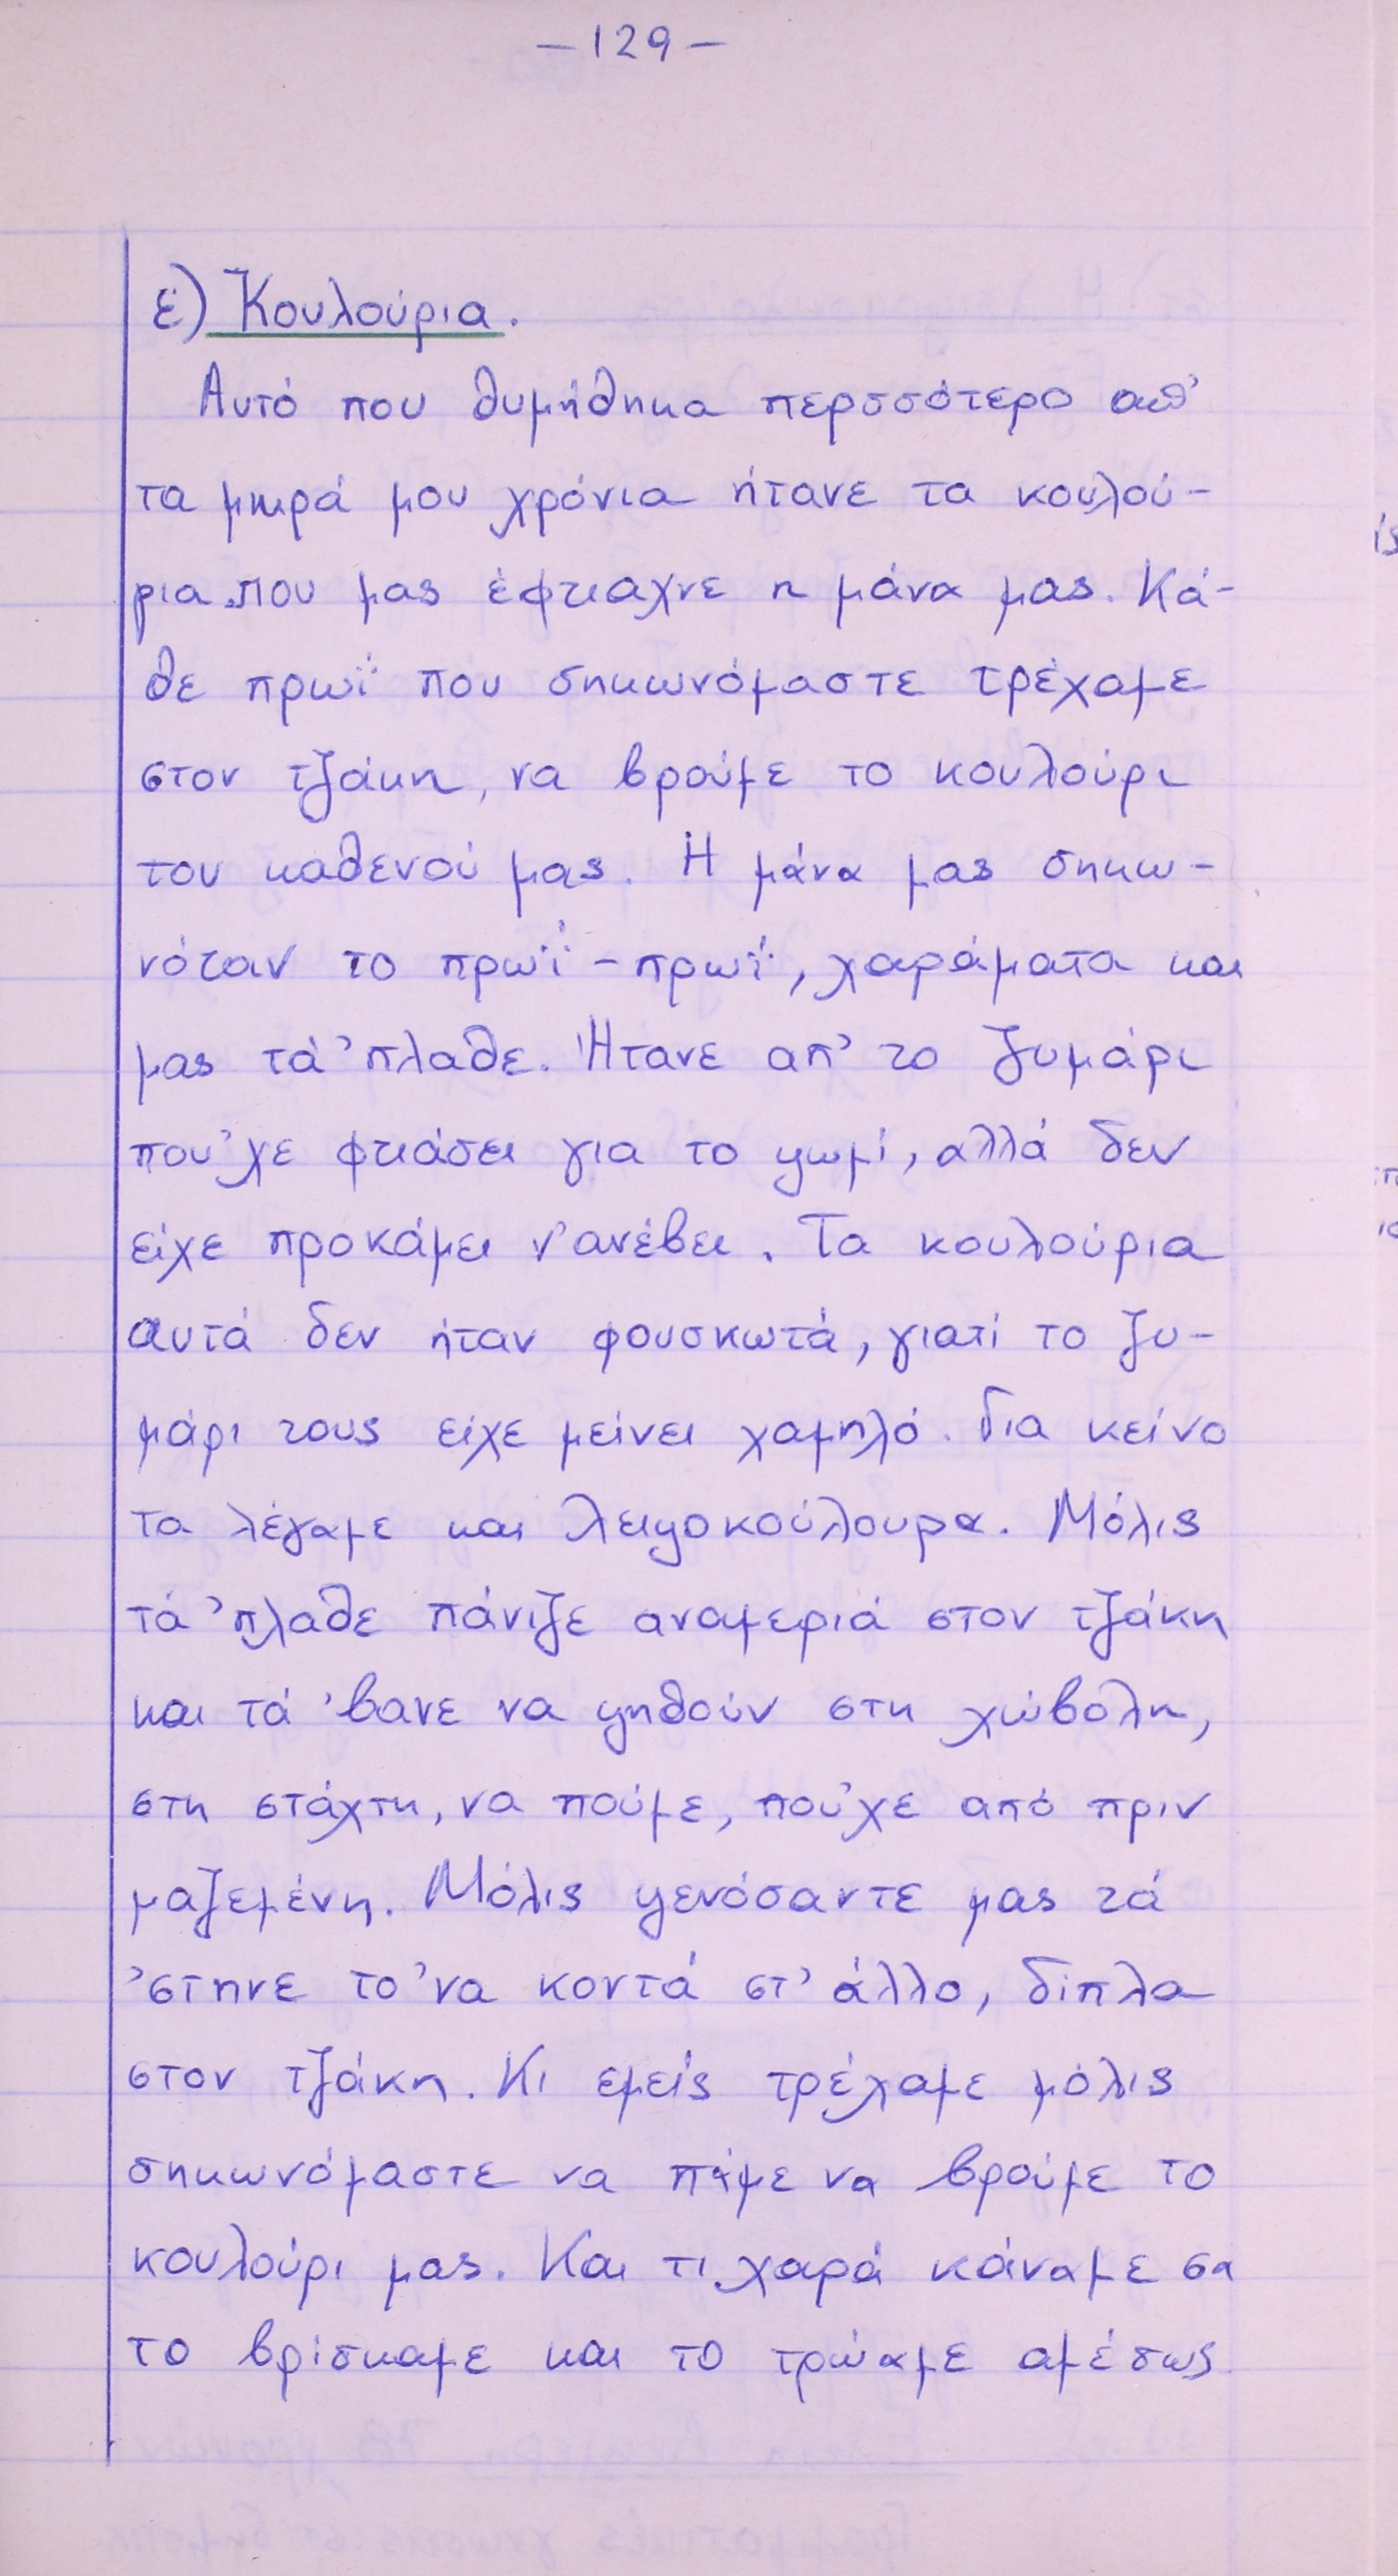 -129-
ε) Κουλούρια.
Αυτό που θυμήθηκα περσσότερο απ'
τα μικρά μου χρόνια ήτανε τα κουλού-
ρια που μας έφτιαχνε η μάνα μας. Κά-
θε πρωΐ που σηκωνόμαστε τρέχαμε
στον τζάκη, να βρούμε το κουλούρι
του καθενού μας. Η μάνα μας σηκω-
νόταν το πρωΐ-πρωΐ, χαράματα και
μας τά 'πλαθε. Ήτανε απ' το ζυμάρι
πού 'χε φτιάσει για το ψωμί, αλλά δεν
είχε προκάμει ν' ανέβει. Τα κουλούρια
αυτά δεν ήταν φουσκωτά, γιατί το ζυ-
μάρι τους είχε μείνει χαμηλό. Για κείνο
τα λέγαμε και λειψοκούλουρα. Μόλις
τά 'πλαθε πάνιζε αναμεριά στον τζάκη
και τά 'βανε να ψηθούν στη χώβολη,
στη στάχτη, να πούμε, πού 'χε από πριν
μαζεμένη. Μόλις ψενόσαντε μας τά
'στηνε το 'να κοντά στ' άλλο, δίπλα
στον τζάκη. Κι εμείς τρέχαμε μόλις
σηκωνόμαστε να πάμε να βρούμε το
κουλούρι μας. Και τι χαρά κάναμε σα
το βρίσκαμε και το τρώαμε αμέσως